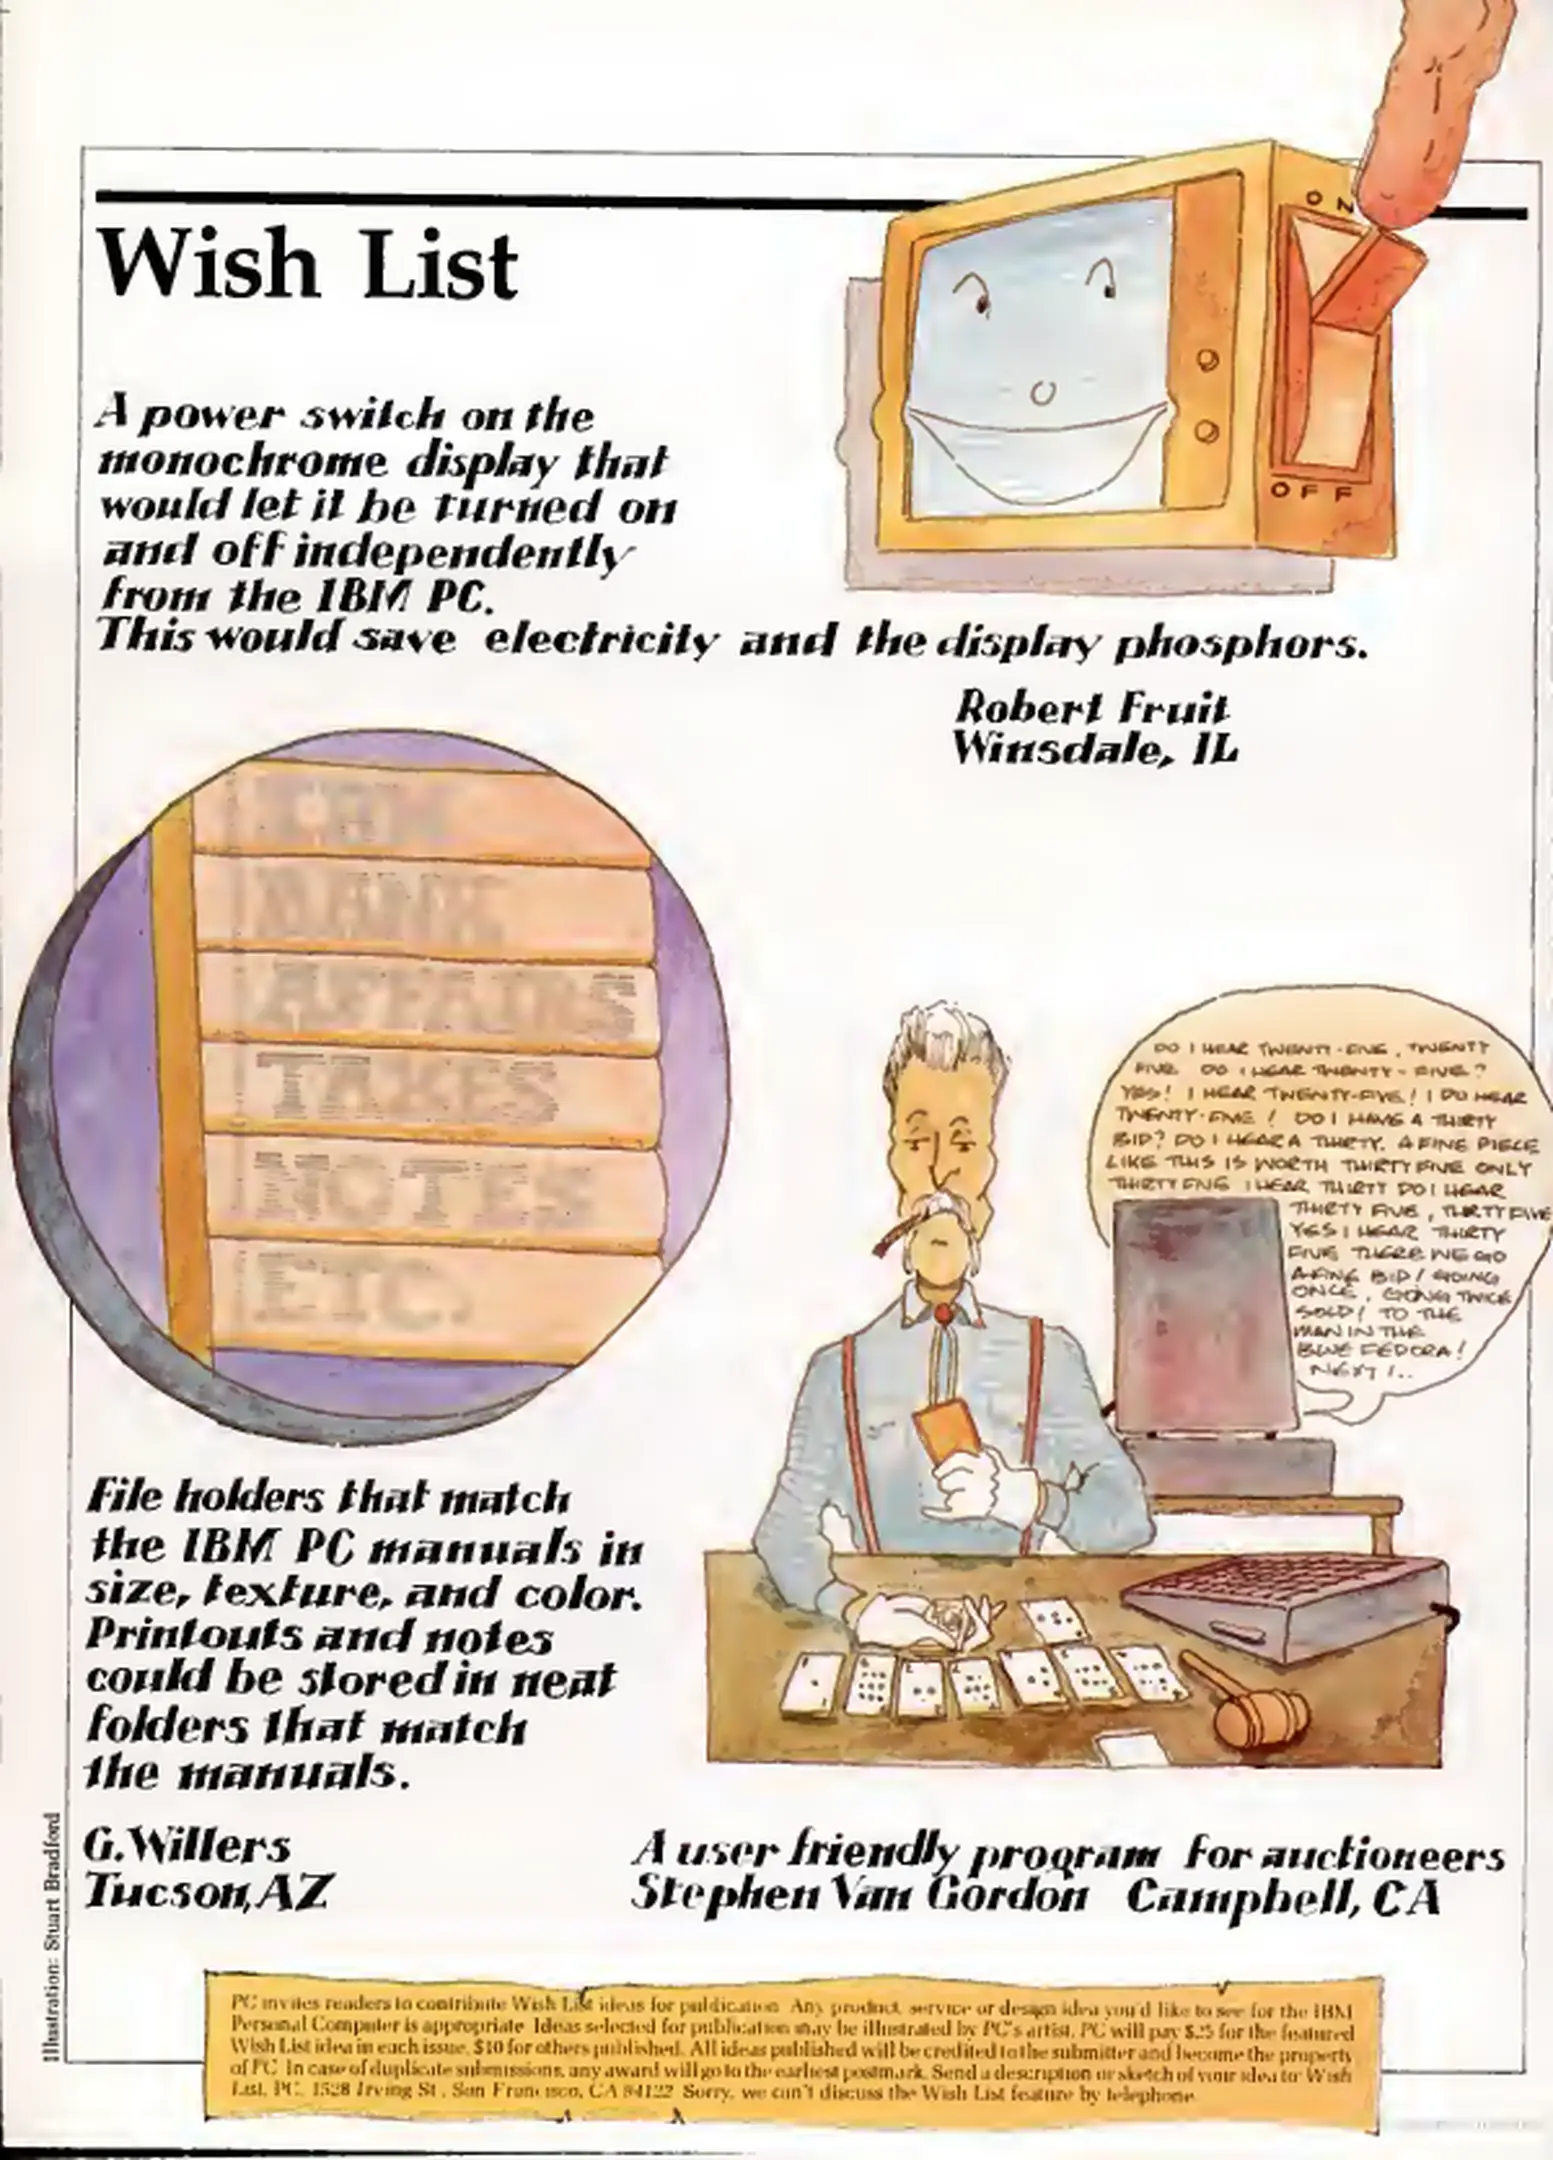 ON
OFF
Wish List
A power switch on the
monochrome display that
would let it be turned on
and off independently
from the IBM PC.
This would save electricity and the display phosphors.
Robert Fruit
Winsdale, IL
IBM
BANK
AFFAIRS
TAXES
NOTES
ETC.
DO I HEAR TWENTY-FIVE, TWENTY
FIVE DO I HEAR TWENTY-FIVE?
YES! I HEAR TWENTY-FIVE! I DO HEAR
TWENTY-FIVE! DO I HAVE A THIRTY
BID? DO I HEAR A THIRTY. A FINE PIECE
LIKE THIS IS WORTH THIRTY FIVE ONLY
THIRTY FIVE I HEAR THIRTY DO I HEAR
THIRTY FIVE, THIRTY FIVE
YES I HEAR THIRTY
FIVE THERE WE GO
A FINE BID! GOING
ONCE, GOING TWICE
SOLD! TO THE
MAN IN THE
BLUE FEDORA!
NEXT!..
File holders that match
the IBM PC manuals in
size, texture, and color.
Printouts and notes
could be stored in neat
folders that match
the manuals.
G. Willers
Tucson, AZ
A user friendly program for auctioneers
Stephen Van Gordon Campbell, CA
Illustration: Stuart Bradford
PC invites readers to contribute Wish List ideas for publication. Any product, service or design idea you'd like to see for the IBM
Personal Computer is appropriate. Ideas selected for publication may be illustrated by PC's artist. PC will pay $25 for the featured
Wish List idea in each issue, $10 for others published. All ideas published will be credited to the submitter and become the property
of PC. In case of duplicate submissions, any award will go to the earliest postmark. Send a description or sketch of your idea to: Wish
List, PC, 1528 Irving St., San Francisco, CA 94122. Sorry, we can't discuss the Wish List feature by telephone.